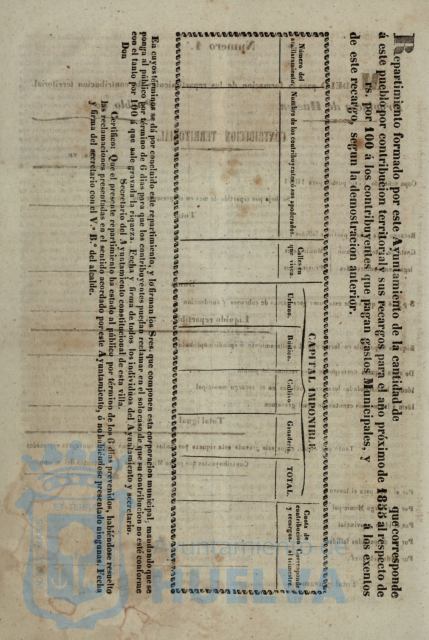 Repartimiento formado por este Ayuntamiento de la cantidad de que corresponde
á este pueblo por contribucion territorial y sus recargos para el año próximo de 1855 al respecto de
rs. por 100 á los contribuyentes que pagan gastos Municipales, y á los exentos
de este recargo, segun la demostracion anterior.
CAPITAL IMPONIBLE.
Número del
Nombre de los contribuyentes ó sus apoderados.
Calles en
que viven.
Urbana.
Rústica.
Cultivo
Ganadería.
TOTAL.
Cuota de
contribucion
y recargo.
Corresponde
al trimestre.
En cuyos términos se da por concluido este repartimiento, y lo firman los Sres. que componen esta corporacion municipal, mandando que se
ponga al público por término de 6 dias para que los contribuyentes puedan reclamar en el solo caso de que su contribucion no esté conforme
con el tanto por 100 á que sale gravada la riqueza. Fecha y firma de todos los individuos del Ayuntamiento y secretario.
Don Secretario del Ayuntamiento constitucional de esta villa.
Certifico: Que el presente repartimiento ha estado al público por término de los 6 dias prevenidos, habiéndose resuelto
las reclamaciones presentadas en el sentido acordado por este Ayuntamiento, ó no habiéndose presentado ningunas. Fecha
y firma del secretario con el V.º B.º del alcalde.
Ayuntamiento de
HUELVA